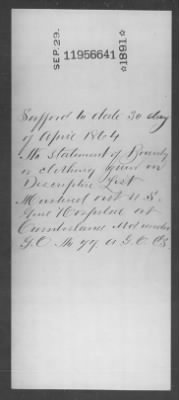 SEP. 29.
11956641
☆1891☆
to date 30 day
of April 1864
No statement of Bounty
or clothing given on
Descriptive List
Mustered out U.S.
Genl Hospital at
Cumberland Md under
G.O. No 77 A.G.O.